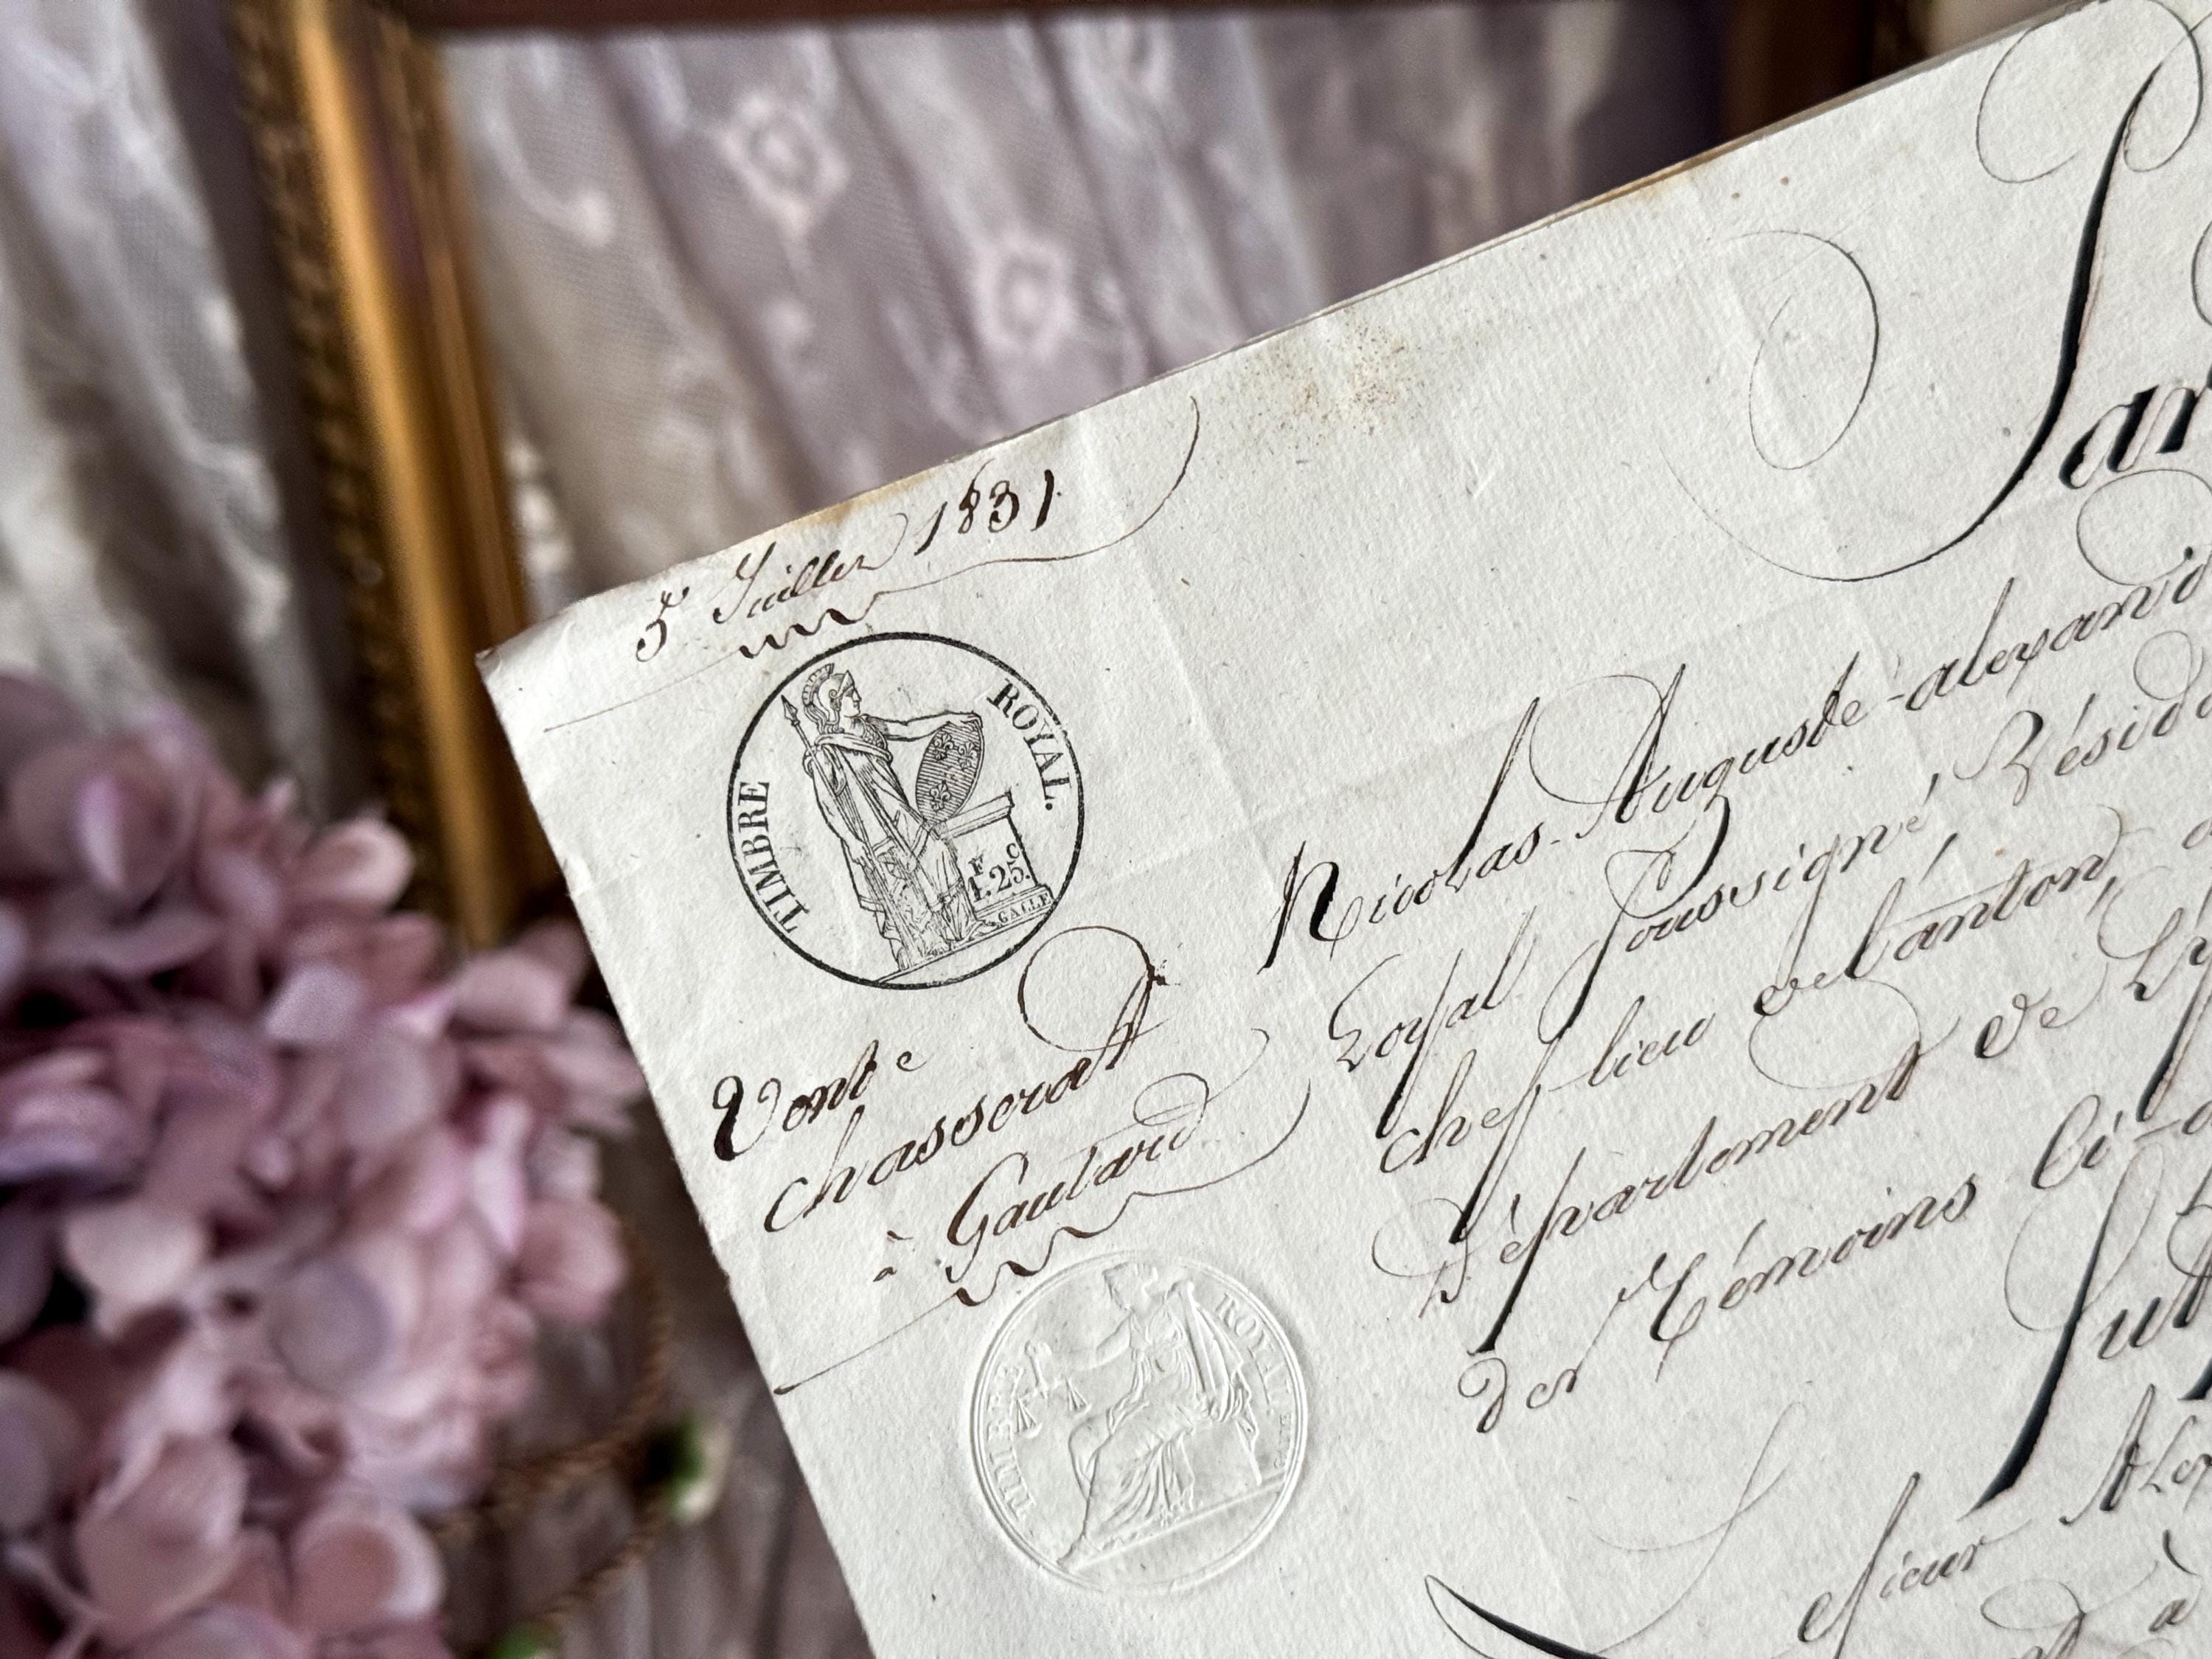 5 Juillet 1831
TIMBRE ROYAL.
F C
1.25.
GALLE
Vente
Chasserat
à Gaulard
TIMBRE ROYAL
Par
Nicolas-Auguste-alexand
Loyal Soussigné Résid
chef lieu de Canton,
Département de
Des Témoins Ci-
Fut
Sieur Alex
à